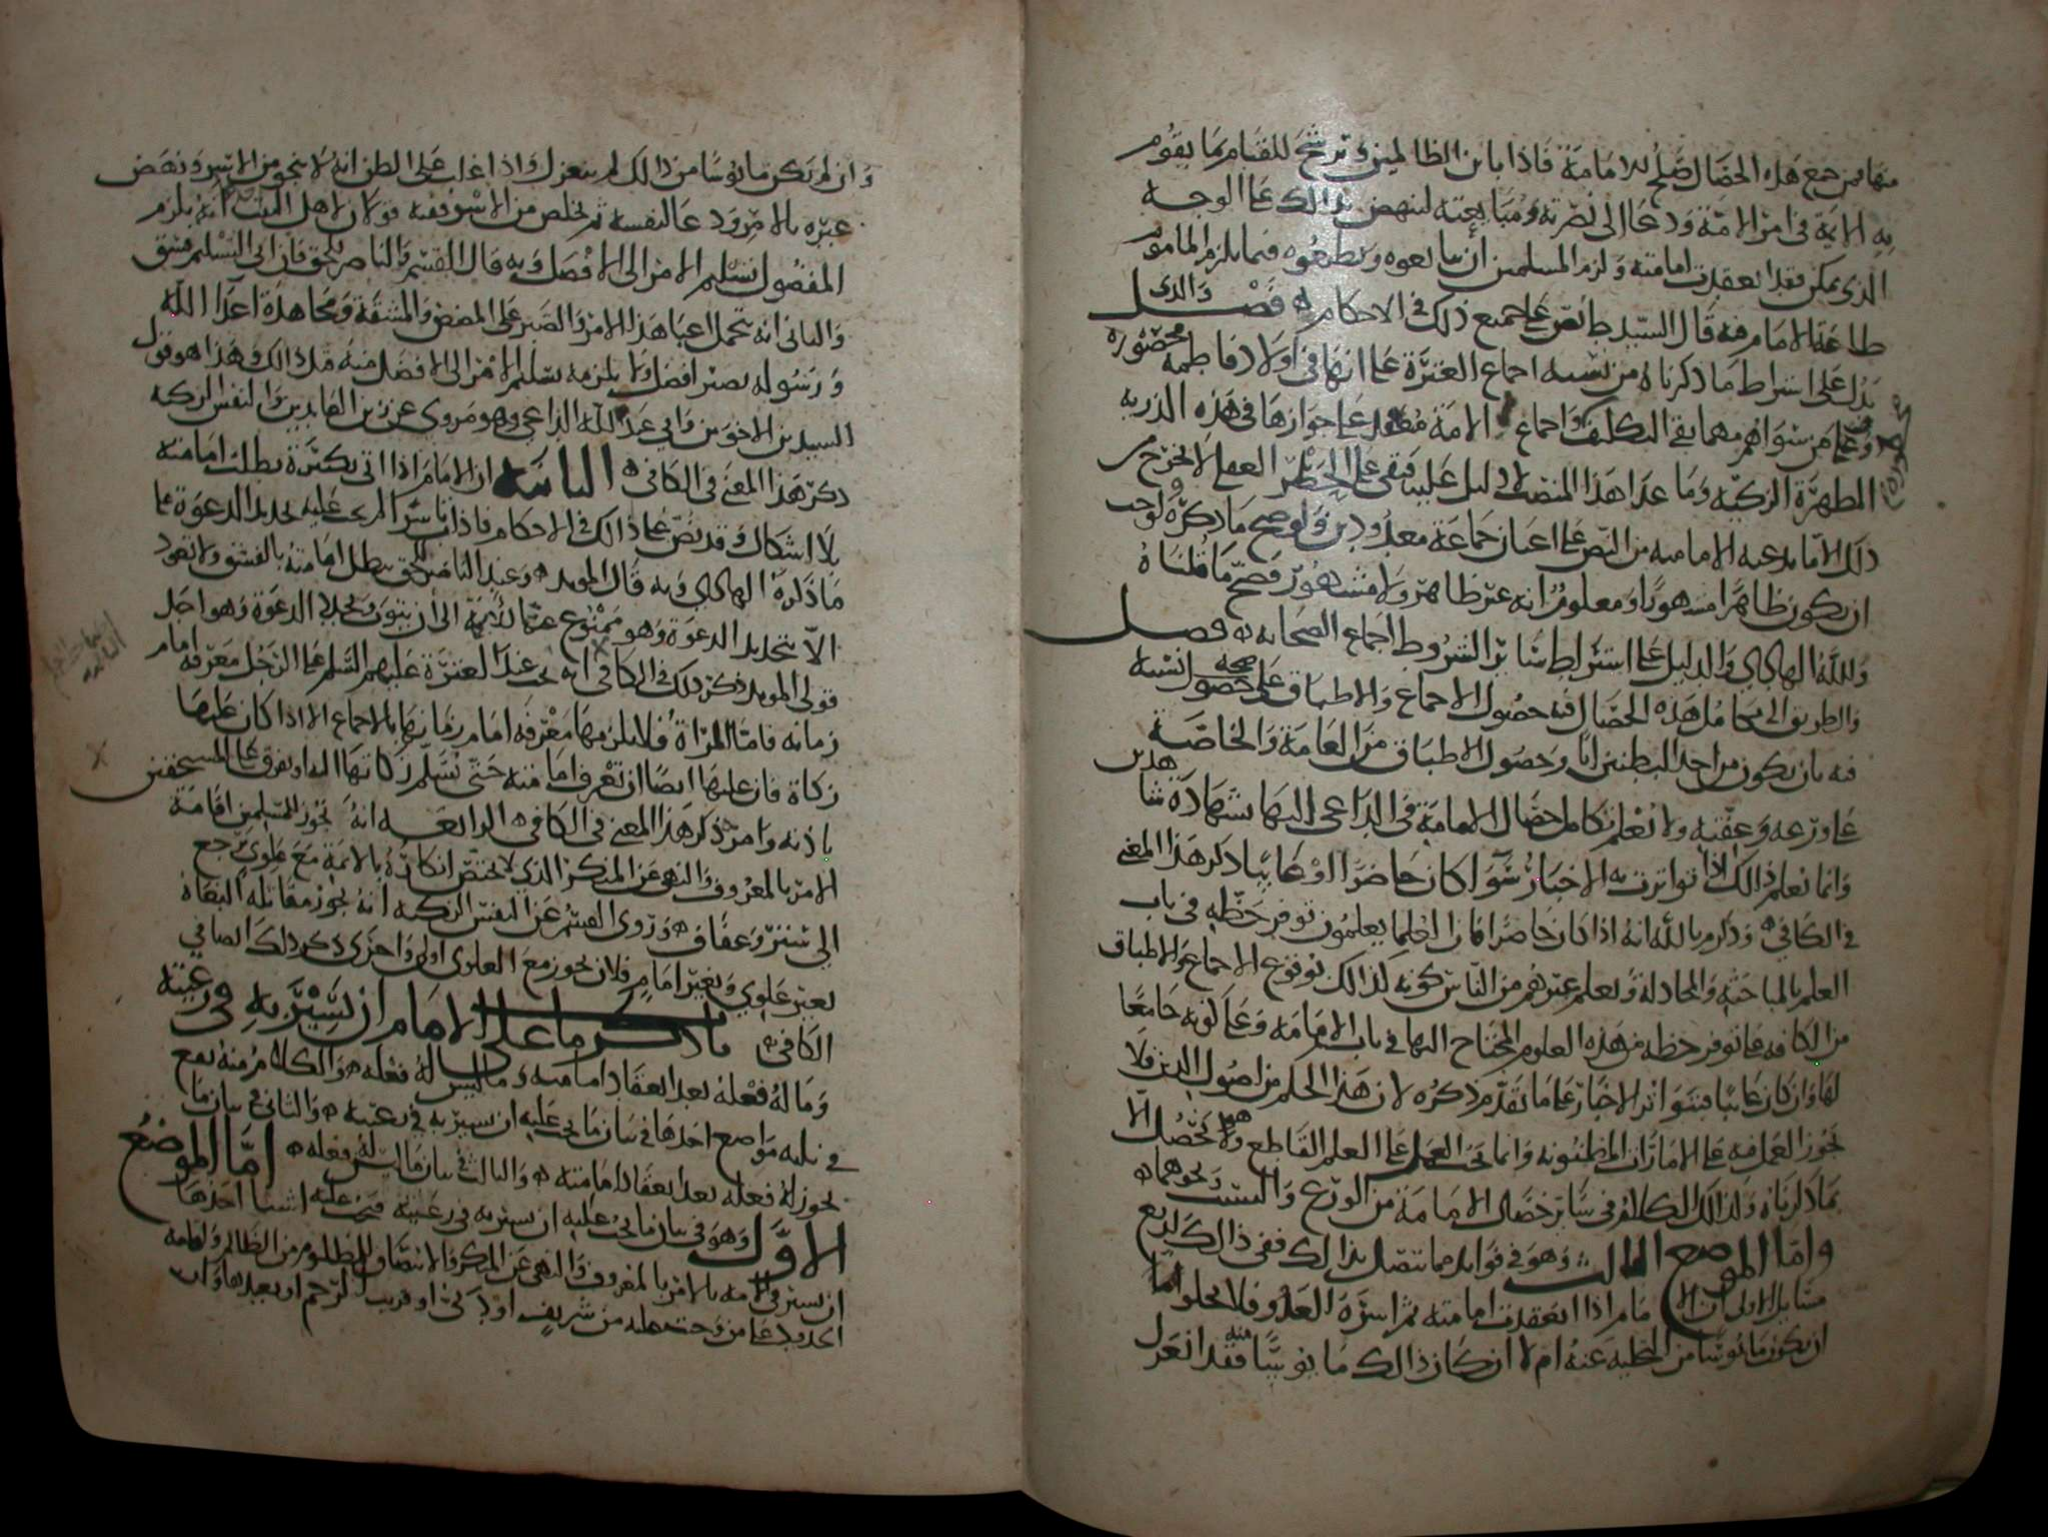 منها فمن جمع هذه الخصال صلح للامامة فاذا باين الظالمين وترشح للقيام بما يقوم
به الايمة في امر الامة ودعا الى نصرته ومبايعته لينهض بذالك على الوجه
الذي يمكن فقد انعقدت امامته ولزم المسلمين ان يبايعوه ويطيعوه فيما يلزم الماموم
طاعة الامام فيه قال السيد ط نص على جميع ذلك في الاحكام فصل والذي
يدل على اشراط ما ذكرناه من نسبه اجماع العترة على انها في اولاد فاطمه محصوره
من سواهم مهما بقي التكليف واجماع الامة منعقد على جوازها في هذه الذريه
المطهرة الزكيه وما عدا هذا المنصب لا دليل عليه فبقي على الحظر العقلي لا يخرج من
ذلك الا ما يدعيه الاماميه من النص على اعيان جماعة معدودين ولو صح ما ذكروه لوجب
ان يكون ظاهرا مشهورا ومعلوم انه غير ظاهر ولا مشهور فصح ما قلناه
والدليل على اشتراط سائر الشروط اجماع الصحابه فصل
والطريق الى تكامل هذه الخصال فيه حصول الاجماع والاطباق على صحه نسبه
فيه بان يكون من احد البطنين ابا وحصول الاطباق من العامة والخاصة
على ورعه وعفته ولا نعلم تكامل خصال الامامة في الداعي اليها بشهادة شاهدين
وانما نعلم ذالك اذا تواترت به الاخبار سوآ كان حاضرا او غايبا ذكر هذا المعنى
في الكافي وذكر م بالله انه اذا كان حاضرا فان العلما يعلمون توفر حظه في باب
العلم بالمباحثه والمجادلة ويعلم غيرهم من الناس كونه كذالك بوقوع الاجماع والاطباق
من الكافه على توفر حظه من هذه العلوم المحتاج اليها في باب الامامه وعلى كونه جامعا
لها وان كان غايبا فبتواتر الاخبار على ما تقدم ذكره لان هذا الحكم من اصول الدين فلا
يجوز العمل فيه على الامارات المظنونه وانما يجب العمل على العلم القاطع وهو لا يحصل الا
بما ذكرناه وكذالك الكلام في سائر خصال الامامة من الورع والنسب ونحوهما
واما الموضع الثالث وهو في فوايد مما تتصل بذالك ففي ذالك اربع
مسايل الاولى ان الامام اذا انعقدت امامته ثم اسره العدو فلا يخلو اما
ان يكون مايوسا من التخليه عنه ام لا ان كان ذالك مايوسا منه فقد انعزل
وان لم يكن مايوسا من ذالك لم ينعزل واذا غلب على الظن انه لا ينجو من الاسر ونهض
غيره بالامر ودعا لنفسه ثم تخلص من الاسر ففيه قولان لاهل البيت انه يلزم
المفضول تسليم الامر الى الافضل وبه قال القسم والناصر للحق فان ابى التسليم فسق
والثاني انه بتحمل اعبا هذا الامر والصبر على المضض والمشقة ومجاهدة اعدا الله
ورسوله يصير افضل ولا يلزمه تسليم الامر الى الافضل منه قبل ذالك وهذا هو قول
السيدين الاخوين وابي عبد الله الداعي وهو مروي عن زين العابدين والنفس الزكيه
ذكر هذا المعنى في الكافي الثانيه ان الامام اذا اتى بكبيرة بطلت امامته
بلا اشكال وقد نص على ذالك في الاحكام فاذا تاب سرا لم يجب عليه تجديد الدعوة على
ما ذكره وبه قال المويد وعند الناصر للحق تبطل امامته بالفسق ولا تعود
الا بتجديد الدعوة وهو ممنوع عما للايمة الى ان يتوب ويجدد الدعوة وهو احد
قولي المويد ذكر ذلك في الكافي انه يجب عند العترة عليهم السلم على الرجل معرفة امام
زمانه فاما المراة فلا يلزمها معرفه امام زمانها بالاجماع الا اذا كان عليها
زكاة فان عليها ايضا ان تعرف امامته حتى تسلم زكاتها اليه او تفرق على المستحقين
باذنه وامره ذكر هذا المعنى في الكافي الرابعه انه يجوز للمسلمين اقامة
الامر بالمعروف والنهي عن المنكر الذي لا يختص انكاره بالايمة مع علوي يرجع
الى ستر وعفاف وروى القسم عن النفس الزكيه انه يجوز مقاتله البغاة
بغير علوي وبغير امام فلان يجوز مع العلوي اولى واحرى ذكر ذلك ايضا في
الكافي ما ذكر ما على الامام ان يسير به في رعيته
وما له فعله بعد انعقاد امامته وما ليس له فعله والكلام منه يقع
في ثلثه مواضع احدها في بيان ما يجب عليه ان يسير به في رعيته والثاني في بيان ما
يجوز له فعله بعد انعقاد امامته والثالث في بيان ما ليس له فعله اما الموضع
الاول وهو في بيان ما يجب عليه ان يسير به في رعيته فيجب عليه اشيا احدها
ان يسير في الامه بالامر بالمعروف والنهي عن المنكر والانتصاف للمظلوم من الظالم واقامه
الحدود على من وجبت عليه من شريف او دني او قريب الرحم او بعيدها وان